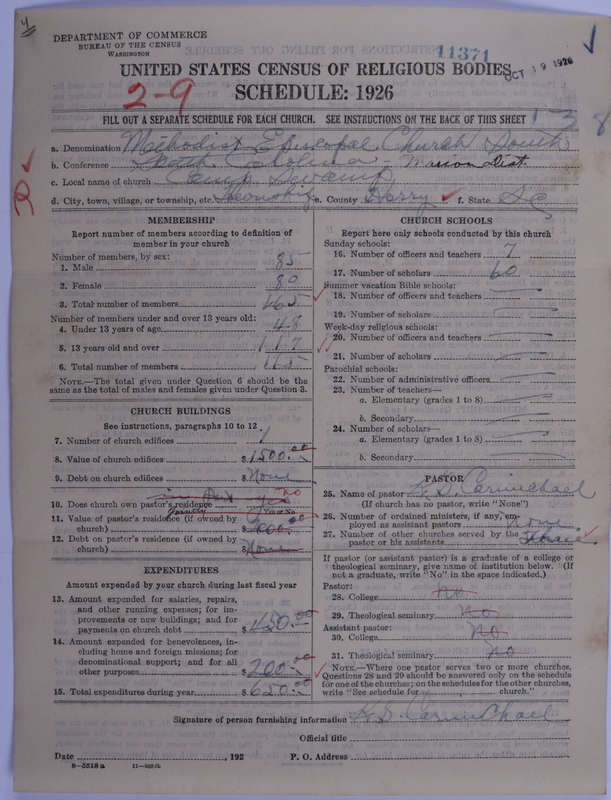 4
DEPARTMENT OF COMMERCE
BUREAU OF THE CENSUS
WASHINGTON
11371
OCT 19 1926
UNITED STATES CENSUS OF RELIGIOUS BODIES
2-9
SCHEDULE: 1926
FILL OUT A SEPARATE SCHEDULE FOR EACH CHURCH. SEE INSTRUCTIONS ON THE BACK OF THIS SHEET
138
a. Denomination Methodist Episcopal Church South
b. Conference South Carolina - Marion Dist.
c. Local name of church Camp Swamp
d. City, town, village, or township, etc. Township e. County Horry f. State S.C.
MEMBERSHIP
Report number of members according to definition of member in your church
Number of members, by sex:
1. Male 85
2. Female 80
3. Total number of members 165
Number of members under and over 13 years old:
4. Under 13 years of age 48
5. 13 years old and over 117
6. Total number of members 165
NOTE.—The total given under Question 6 should be the same as the total of males and females given under Question 3.
CHURCH BUILDINGS
See instructions, paragraphs 10 to 12
7. Number of church edifices 1
8. Value of church edifices $1500.00
9. Debt on church edifices $ None
10. Does church own pastor's residence in part yes no
Yes or No
11. Value of pastor's residence (if owned by church) $
12. Debt on pastor's residence (if owned by church) $ None
EXPENDITURES
Amount expended by your church during last fiscal year
13. Amount expended for salaries, repairs, and other running expenses; for improvements or new buildings; and for payments on church debt $450.00
14. Amount expended for benevolences, including home and foreign missions; for denominational support; and for all other purposes $200.00
15. Total expenditures during year $650.00
CHURCH SCHOOLS
Report here only schools conducted by this church
Sunday schools:
16. Number of officers and teachers 7
17. Number of scholars 60
Summer vacation Bible schools:
18. Number of officers and teachers
19. Number of scholars
Week-day religious schools:
20. Number of officers and teachers
21. Number of scholars
Parochial schools:
22. Number of administrative officers
23. Number of teachers—
a. Elementary (grades 1 to 8)
b. Secondary
24. Number of scholars—
a. Elementary (grades 1 to 8)
b. Secondary
PASTOR
25. Name of pastor K. S. Carmichael
(If church has no pastor, write "None")
26. Number of ordained ministers, if any, employed as assistant pastors None
27. Number of other churches served by the pastor or his assistants Three
If pastor (or assistant pastor) is a graduate of a college or theological seminary, give name of institution below. (If not a graduate, write "No" in the space indicated.)
Pastor:
28. College no
29. Theological seminary no
Assistant pastor:
30. College no
31. Theological seminary no
NOTE.—Where one pastor serves two or more churches, Questions 28 and 29 should be answered only on the schedule for one of the churches; on the schedules for the other churches, write "See schedule for ........ church."
Signature of person furnishing information K. S. Carmichael
Official title
Date , 192 P. O. Address
8-5518 a